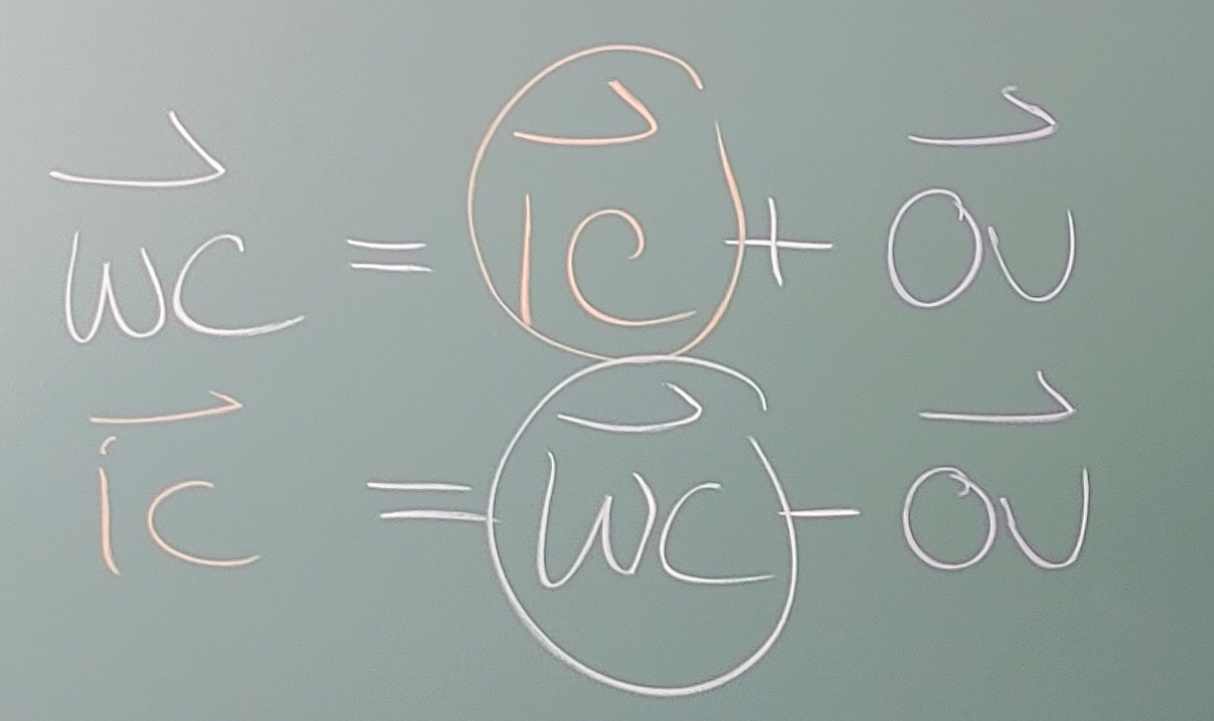 WC = IC + OV
iC = WC - OV